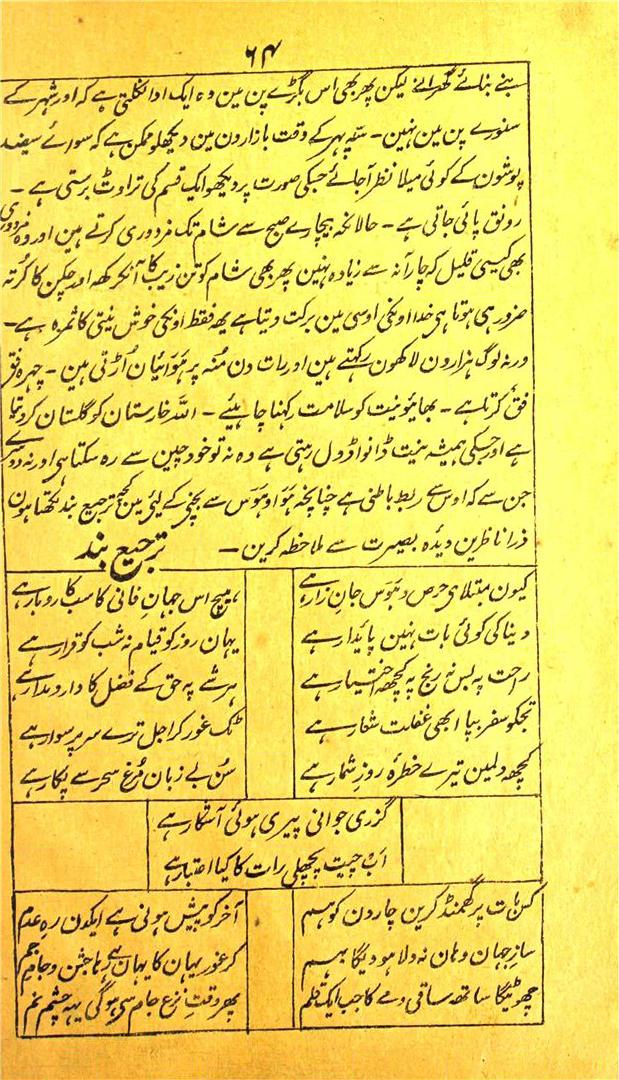 ۶۴
بنے بنائے گھرانے لیکن پھر بھی اس بگڑے پن مین وہ ایک ادا نکلتی ہے کہ اور شہر کے
سنورے پن مین نہین۔ سہ پہر کے وقت بازارون مین دیکھلو ممکن ہے کہ سوائے سفید
پوشون کے کوئی میلا نظر آجائے جسکی صورت پر دیکھو ایک قسم کی تراوٹ برستی ہے۔
رونق پائی جاتی ہے۔ حالانکہ بیچارے صبح سے شام تک مزدوری کرتے ہین اور وہ مزدوری
بھی کیسی قلیل کہ چار آنہ سے زیادہ نہین پھر بھی شام کو تن زیب کا انگرکھہ اور چکن کا کُرتہ
ضرور ہی ہوتا ہی خدا اونکی اوسی مین برکت دیتا ہے یہ فقط اونکی خوش نیتی کا ثمرہ ہے۔
ورنہ لوگ ہزارون لاکھون رکھتے ہین اور رات دن مُنہ پر ہوَائیان اُڑتی ہین۔ چہرہ فق
فق کرتا ہے۔ بھائیو نیت کو سلامت رکھنا چاہیئے۔ اللہ خارستان کو گلستان کر دیتا
ہے اور جسکی ہمیشہ نیت ڈانواڈول رہتی ہے وہ نہ تو خود چین سے رہ سکتا ہی اور نہ دوسرے
جن سے کہ اوسے ربط باطنی ہے چنانچہ ہَوَا و ہَوَس سے بچنی کے لیئی مین کچھہ ترجیع بند لکھتا ہون
ذرا ناظرین دیدہ بصیرت سے ملاحظہ کرین۔ ترجیع بند
کیون مبتلای حرص و ہَوَس جانِ زار ہے ہیچ اس جہانِ فانی کا سب کاروبار ہے
دنیا کی کوئی بات نہین پائدار ہے یہان روز کو قیام نہ شب کو قرار ہے
راحت پہ بس نہ رنج پہ کچھہ اختیار ہے ہر شے پہ حق کے فضل کا دارومدار ہے
تجکو سفر بپا ابھی غفلت شعار ہے ٹک غور کر اجل ترے سر پر سوار ہے
کچھہ دلمین تیرے خطرۂ روزِ شمار ہے سُن بے زبان مُرغِ سحر سے پکار ہے
گزری جوانی پیری ہوئی آشکار ہے
اَب چیت پچھلی رات کا کیا اعتبار ہے
کس بات پر گھمنڈ کرین چار دن کو ہم آخر کو پیش ہونی ہے ایکدن رہِ عدم
سازِ جہان وہان نہ دلا ہو ویگا بہم کر غور یہان کا یہان ہے رہا جشن و جامِ جم
چھوٹیگا ساتھہ ساقی و مے کا جب ایک قلم پھر وقتِ نزع جام سی ہوگی یہہ چشم نم